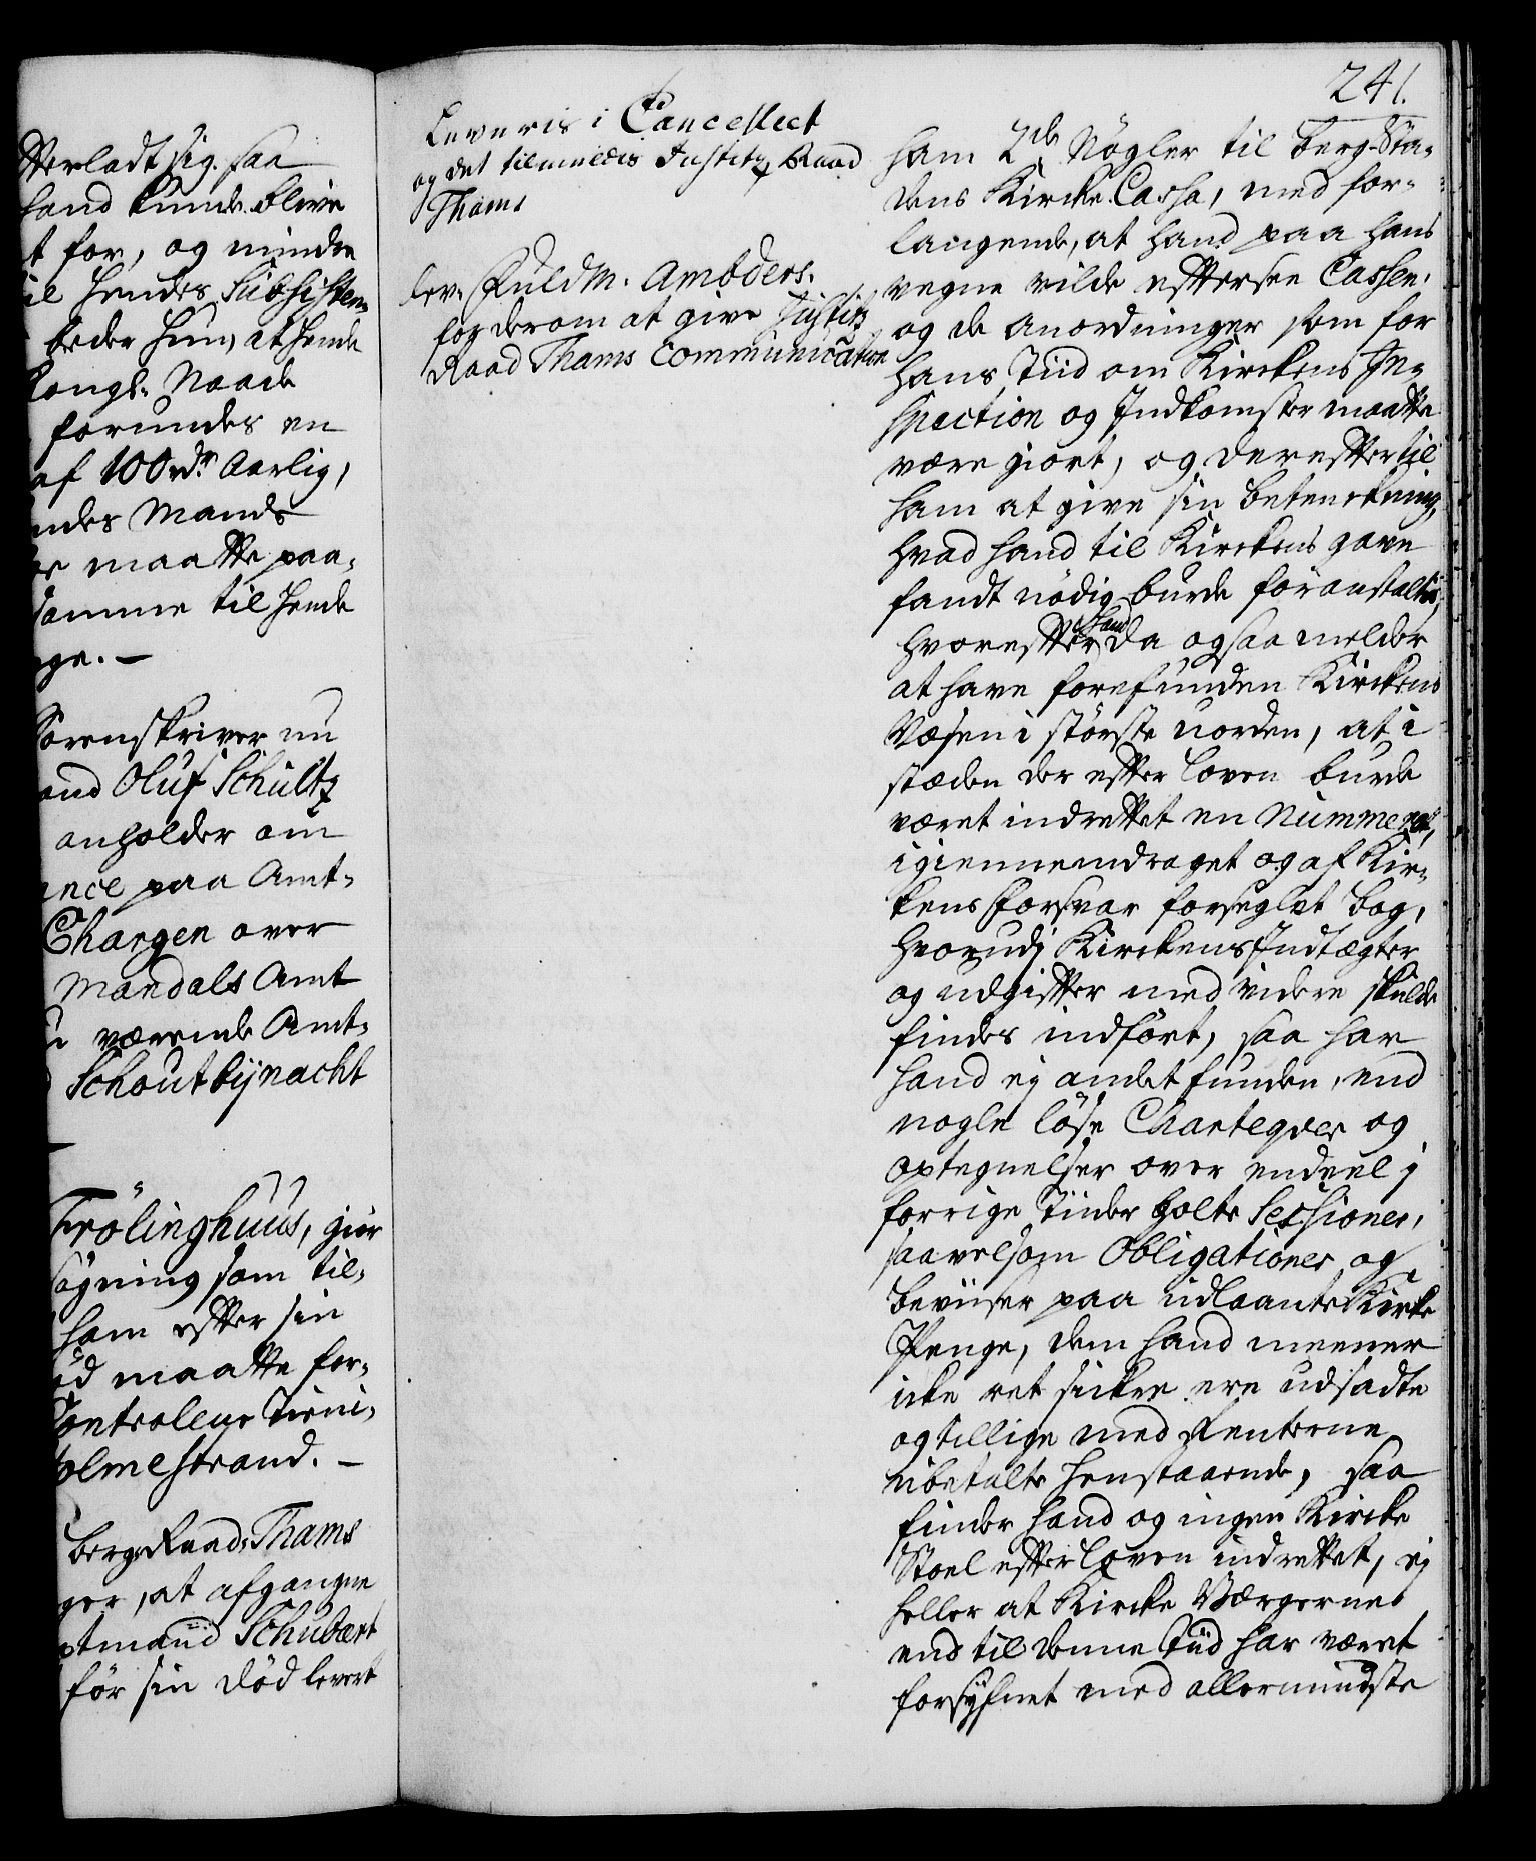 241.
tterladt sig. saa
hand kunde blive
t for, og mindre
il hendes Subsisten-
beder hun, at hende
Kongl: Naade
forundes en
af 100 rdr Aarlig,
ndes Mands
maatte paa-
samme til hende
ge. —
Sorenskriver nu
and Oluf Schultz
anholder om
ance paa Amt-
Chargen over
Mandals Amt
værende Amt-
Schoutbijnacht
Frölinghuus, giör
søgning som til-
ham efter sin
maatte for-
Controlleur Tieni-
Holmestrand. —
Berg-Raad Thams
ger, at afgangne
ptmand Schubært
för sin död levert
Leveris i Cancelliet
og det tilmeldis Justitz Raad
Thams
lev: Fuldm. Ambders:
for derom at give Justitz
Raad Thams Communication
ham 2de Nøgler til Berg-Sta-
dens Kircke-Cassa, med for-
langende, at hand paa hans
vegne vilde eftersee Cassen,
og de anordninger som for
hans Tiid om Kirckens In-
spection og Indkomster maatte
være giort, og derefter til
ham at give sin betenckning,
hvad hand til Kirckens gavn
fandt nödig burde foranstaltis,
hvorefter hand da ogsaa melder
at have forefunden Kirckens
Væsen i störste uorden, at i
stæden der efter Loven burde
været indrettet en Nummeret,
igiennemdraget og af Kir-
kens Forsvar forseglet bog,
hvorudj Kirckens Indtægter
og udgifter med videre skulde
findes indfört, saa har
hand ej andet funden, end
nogle löse Charteqver og
optegnelser over endeel j
forrige Tiider holte Sessioner,
saavelsom Obligationer og
beviiser paa udlaante Kirke
Penge, dem hand meener
icke ret sickre ere udsadte
og tillige med Renterne
ubetalte henstaaende, saa
finder hand og ingen Kircke
Stoel efter Loven indrettet, ej
heller at Kircke Værgerne
end til denne Tiid har været
forsyfnet med allermindste